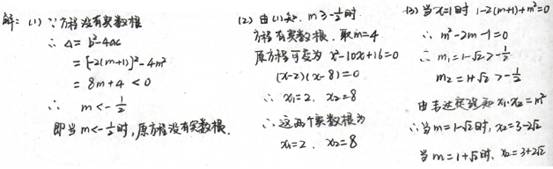 解：(1) ∵方程没有实数根
∴ Δ=b²-4ac
=[-2(m+1)]²-4m²
=8m+4<0
∴ m<-1/2
即当m<-1/2时,原方程没有实数根.
(2) 由(1)知, m≥-1/2时
方程有实数根. 取m=4
原方程可变为 x²-10x+16=0
(x-2)(x-8)=0
∴ x₁=2, x₂=8
∴这两个实数根为
x₁=2, x₂=8
(3) 当x=1时 1-2(m+1)+m²=0
∴ m²-2m-1=0
∴ m₁=1-√2>-1/2
m₂=1+√2>-1/2
由韦达定理知 x₁·x₂=m²
∴当m=1-√2时, x₂=3-2√2
当m=1+√2时, x₂=3+2√2